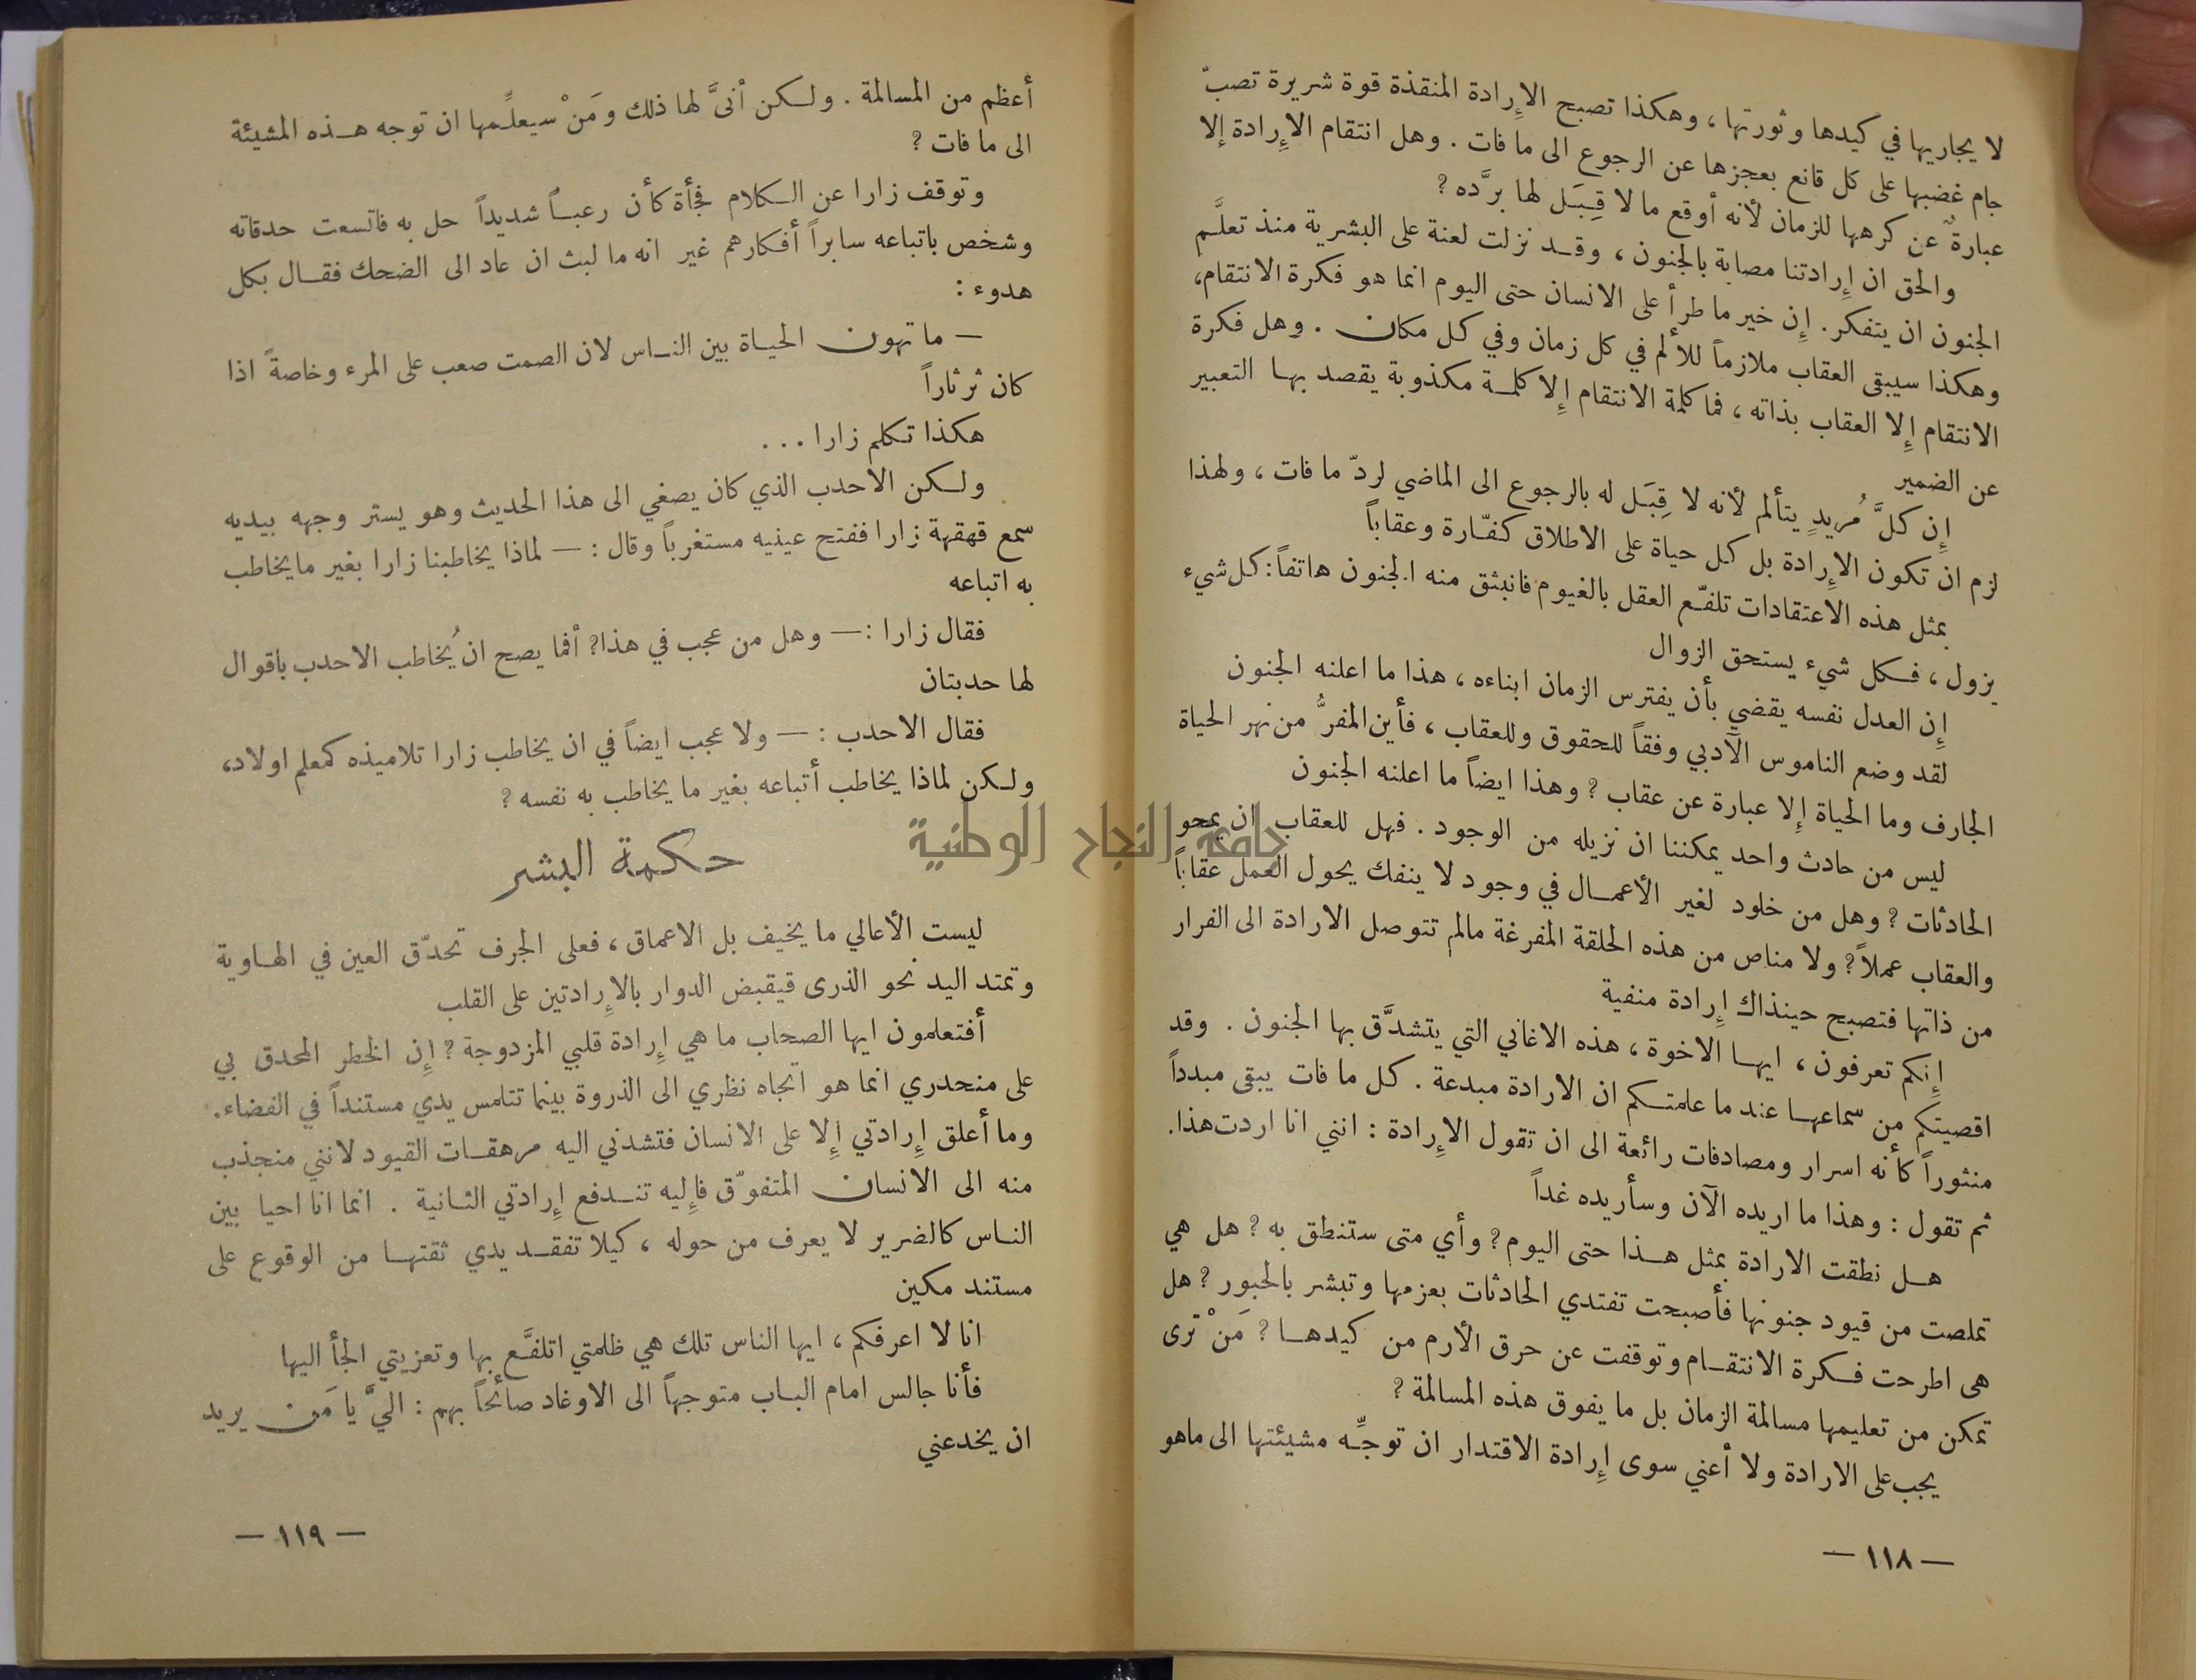 لا يجاريها في كيدها وثورتها ، وهكذا تصبح الإِرادة المنقذة قوة شريرة تصبّ
جام غضبها على كل قانع بعجزها عن الرجوع الى ما فات . وهل انتقام الإِرادة إلا
عبارةٌ عن كرهها للزمان لأنه أوقع ما لا قِبَـل لها بردَّه ؟
والحق ان إِرادتنا مصابة بالجنون ، وقـد نزلت لعنة على البشرية منذ تعلَّم
الجنون ان يتفكر . إِن خير ما طرأ على الانسان حتى اليوم انما هو فكرة الانتقام،
وهكذا سيبقى العقاب ملازماً للألم في كل زمان وفي كل مكان . وهل فكرة
الانتقام إِلا العقاب بذاته ، فما كلمة الانتقام إِلا كلمـة مكذوبة يقصد بهـا التعبير
عن الضمير
إِن كلَّ مُريدٍ يتألم لأنه لا قِبَـل له بالرجوع الى الماضي لردّ ما فات ، ولهذا
لزم ان تكون الإِرادة بل كل حياة على الاطلاق كفّـارة وعقاباً
بمثل هذه الاعتقادات تلفّـع العقل بالغيوم فانبثق منه الجنون هاتفاً : كل شيء
يزول ، فـكل شيء يستحق الزوال
إِن العدل نفسه يقضي بأن يفترس الزمان ابناءه ، هذا ما اعلنه الجنون
لقد وضع الناموس الأدبي وفقاً للحقوق وللعقاب ، فأين المفرُّ من نهر الحياة
الجارف وما الحياة إِلا عبارة عن عقاب ؟ وهذا ايضاً ما اعلنه الجنون
ليس من حادث واحد يمكننا ان نزيله من الوجود . فهل للعقاب ان يمحو
الحادثات ؟ وهل من خلود لغير الأعمـال في وجود لا ينفك يحول العمل عقاباً
والعقاب عملاً ؟ ولا مناص من هذه الحلقة المفرغة مالم تتوصل الارادة الى الفرار
من ذاتها فتصبح حينذاك إِرادة منفية
إِنكم تعرفون ، ايهـا الاخوة ، هذه الاغاني التي يتشدَّق بها الجنون . وقد
اقصيتكم من سماعهـا عند ما علمتـكم ان الارادة مبدعة . كل ما فات يبقى مبدداً
منثوراً كأنه اسرار ومصادفات رائعة الى ان تقول الإِرادة : انني انا اردت هذا.
ثم تقول : وهذا ما اريده الآن وسأريده غداً
هـل نطقت الارادة بمثل هـذا حتى اليوم ؟ وأي متى ستنطق به ؟ هل هي
تملصت من قيود جنونها فأصبحت تفتدي الحادثات بعزمها وتبشر بالحبور ؟ هل
هي اطرحت فـكرة الانتقـام وتوقفت عن حرق الأرم من كيدهـا ؟ مَنْ ترى
تمكن من تعليمها مسالمة الزمان بل ما يفوق هذه المسالمة ؟
يجب على الارادة ولا أعني سوى إِرادة الاقتدار ان توجِّـه مشيئتها الى ماهو
— ١١٨ —
أعظم من المسالمة . ولـكن أنىَّ لها ذلك ومَنْ سيعلِّـمها ان توجه هـذه المشيئة
الى ما فات ؟
وتوقف زارا عن الـكلام فجأة كأن رعبـاً شديداً حل به فاتسعت حدقاته
وشخص باتباعه سابراً أفكارهم غير انه ما لبث ان عاد الى الضحك فقـال بكل
هدوء :
— ما تهون الحيـاة بين النـاس لان الصمت صعب على المرء وخاصةً اذا
كان ثرثاراً
هكذا تكلم زارا ...
ولـكن الاحدب الذي كان يصغي الى هذا الحديث وهو يستر وجهه بيديه
سمع قهقهة زارا ففتح عينيه مستغرباً وقال : — لماذا يخاطبنا زارا بغير ما يخاطب
به اتباعه
فقال زارا : — وهل من عجب في هذا ؟ أفما يصح ان يُخاطب الاحدب باقوال
لها حدبتان
فقال الاحدب : — ولا عجب ايضاً في ان يخاطب زارا تلاميذه كمعلم اولاد،
ولـكن لماذا يخاطب أتباعه بغير ما يخاطب به نفسه ؟
حكمة البشر
ليست الأعالي ما يخيف بل الاعماق ، فعلى الجرف تحدّق العين في الهـاوية
وتمتد اليد نحو الذرى فيقبض الدوار بالإِرادتين على القلب
أفتعلمون ايها الصحاب ما هي إِرادة قلبي المزدوجة ؟ إِن الخطر المحدق بي
على منحدري انما هو اتجاه نظري الى الذروة بينما تتلمس يدي مستنداً في الفضاء.
وما أعلق إِرادتي إِلا على الانسان فتشدني اليه مرهقـات القيود لانني منجذب
منه الى الانسان المتفوّق فإِليه تنـدفع إِرادتي الثـانية . انما انا احيا بين
النـاس كالضرير لا يعرف من حوله ، كيلا تفقـد يدي ثقتهـا من الوقوع على
مستند مكين
انا لا اعرفكم ، ايها الناس تلك هي ظلمتي اتلفَّـع بها وتعزيتي الجأ اليها
فأنا جالس امام البـاب متوجهاً الى الاوغاد صائحاً بهم : اليَّ يا مَن يريد
ان يخدعني
— ١١٩ —
جامعة النجاح الوطنية